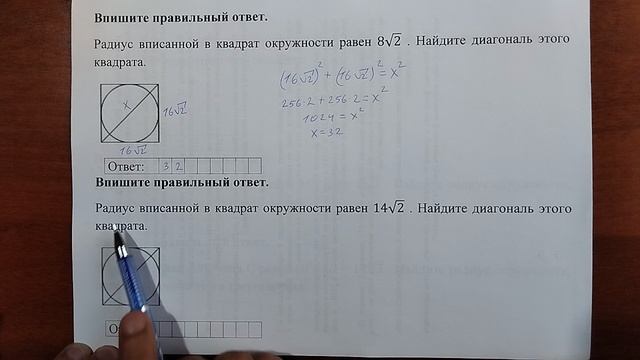 Впишите правильный ответ.
Радиус вписанной в квадрат окружности равен 8√2 . Найдите диагональ этого
квадрата.
(16√2)² + (16√2)² = x²
256·2 + 256·2 = x²
1024 = x²
x = 32
x
16√2
16√2
Ответ: 32
Впишите правильный ответ.
Радиус вписанной в квадрат окружности равен 14√2 . Найдите диагональ этого
квадрата.